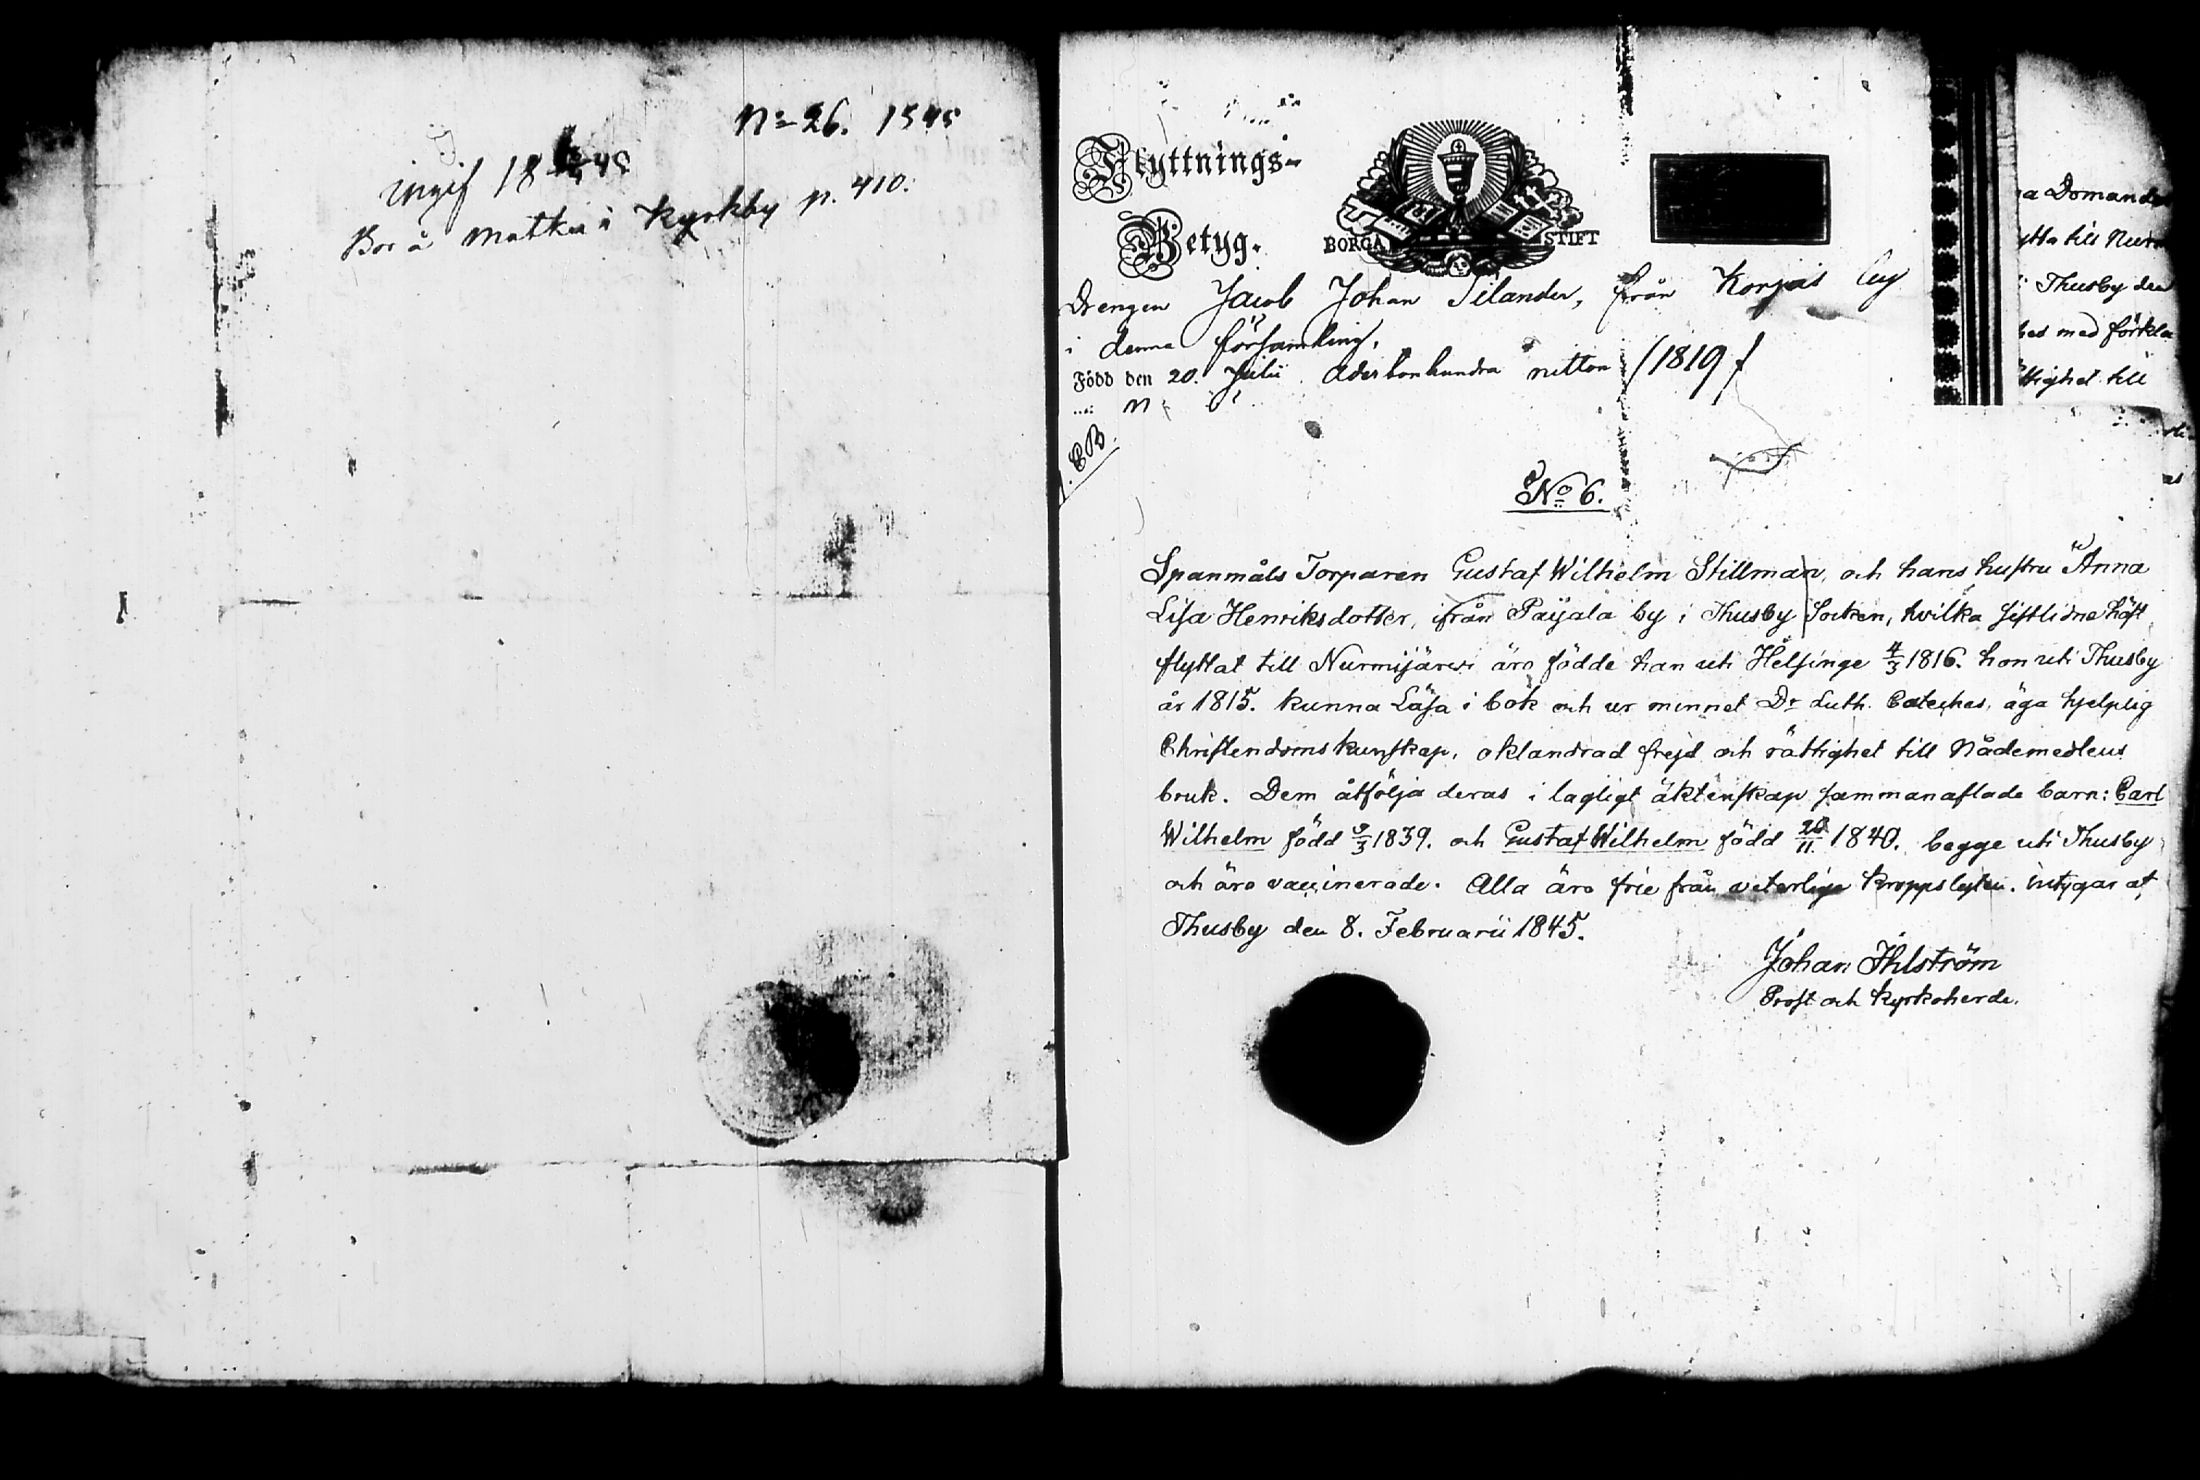 No 26. 1845
ingif 18 45
Bor å Mattka i Kyrkby p. 410.
Flyttnings-
Betyg.
BORGÅ STIFT
Drengen Jacob Johan Silander, från Korpis by
i denna församling,
Född den 20. Julii Adertonhundra nitton (1819)
No 6.
Spanmåls Torparen Gustaf Wilhelm Stillman, och hans hustru Anna
Lisa Henriksdotter, ifrån Paijala by i Thusby Socken, hvilka sistlidne höst
flyttat till Nurmijärwi äro födde han uti Helsinge 4/3 1816. hon uti Thusby
år 1815. kunna Läsa i bok och ur minnet Dr Luth. Cateches, äga hjelplig
Christendoms kunskap, oklandrad frejd och rättighet till Nådemedlens
bruk. Dem åtfölja deras i lagligt äktenskap sammanaflade barn: Carl
Wilhelm född 9/3 1839. och Gustaf Wilhelm född 20/11 1840. begge uti Thusby
och äro vaccinerade. Alla äro frie från veterlige kroppslyten. intygar af
Thusby den 8. Februarii 1845.
Johan Ihlström
Prost och Kyrkoherde.
a Domand
ytta till Nurm
i Thusby den
bes med förkla
ttighet till